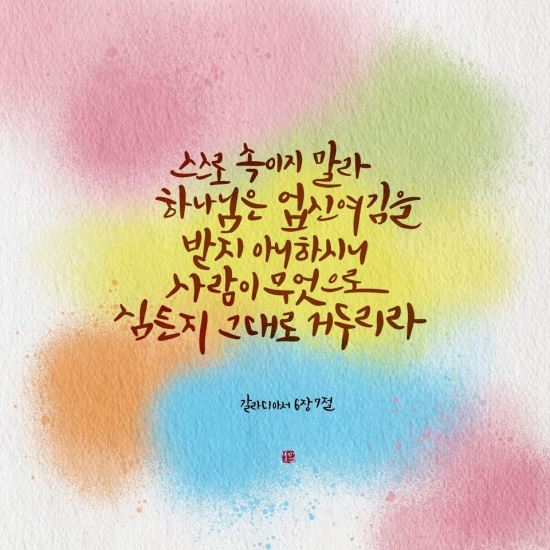 스스로 속이지 말라
하나님은 업신여김을
받지 아니하시나니
사람이 무엇으로
심든지 그대로 거두리라
갈라디아서 6장 7절